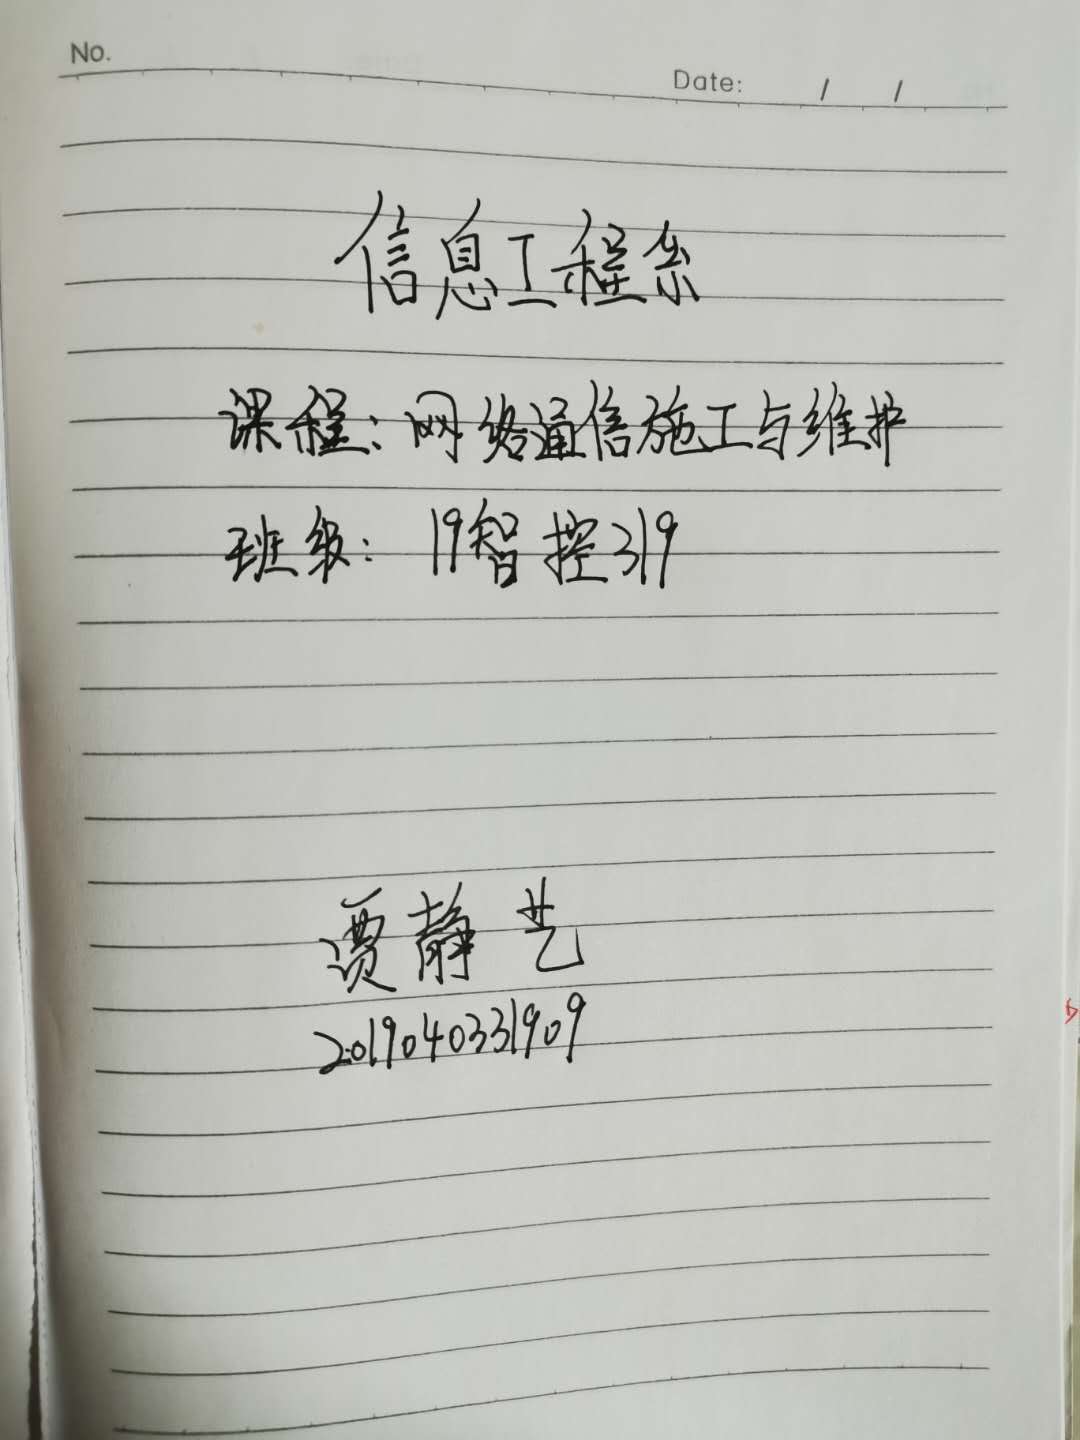 No.
Date: / /
信息工程系
课程：网络通信施工与维护
班级：19智控319
贾静艺
2019040331909